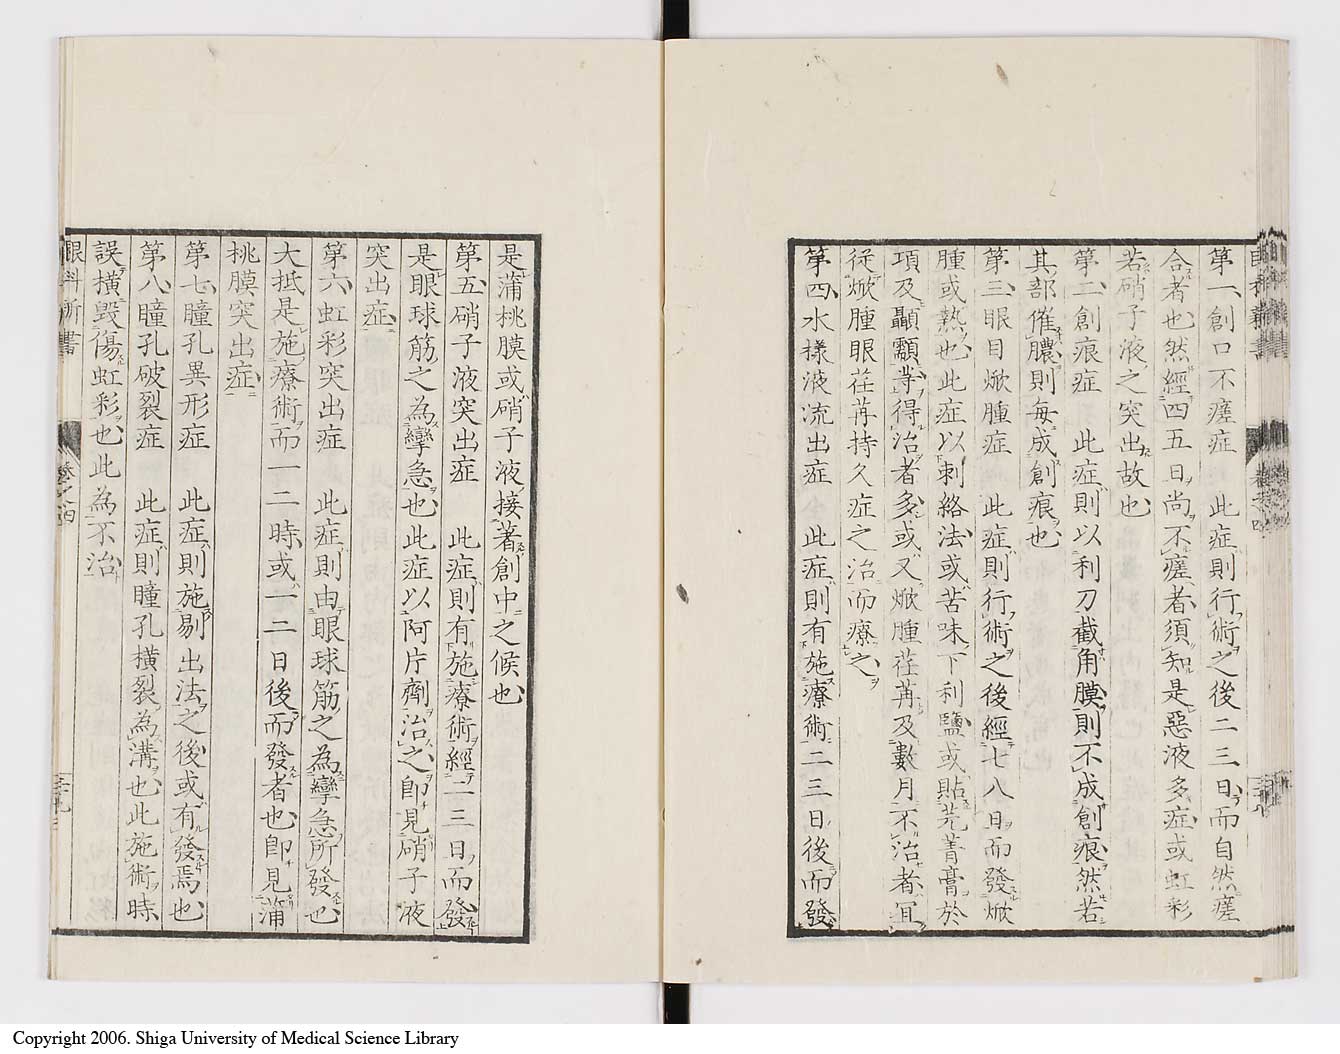 第一創口不瘥症　此症則行術之後二三日而自然瘥
合者也然經四五日尚不瘥者須知是惡液多症或虹彩
若硝子液之突出故也
第二創痕症　此症則以利刀截角膜則不成創痕然若
其部催膿則每成創痕也
第三眼目焮腫症　此症則行術之後經七八日而發焮
腫或熱也此症以刺絡法或苦味下利鹽或貼芫菁膏於
項及顳顬等得治者多或又焮腫荏苒及數月不治者宜
從焮腫眼荏苒持久症之治而療之
第四水樣液流出症　此症則有施療術二三日後而發
是蒲桃膜或硝子液接著創中之候也
第五硝子液突出症　此症則有施療術經二三日而發
是眼球筋之為攣急也此症以阿片劑治之即見硝子液
突出症
第六虹彩突出症　此症則由眼球筋之為攣急所發也
大抵是施療術而一二時或一二日後而發者也即見蒲
桃膜突出症
第七瞳孔異形症　此症則施剔出法之後或有發焉也
第八瞳孔破裂症　此症則瞳孔橫裂為溝也此施術時
誤橫毀傷虹彩也此為不治
眼科新書　卷之四
Copyright 2006. Shiga University of Medical Science Library